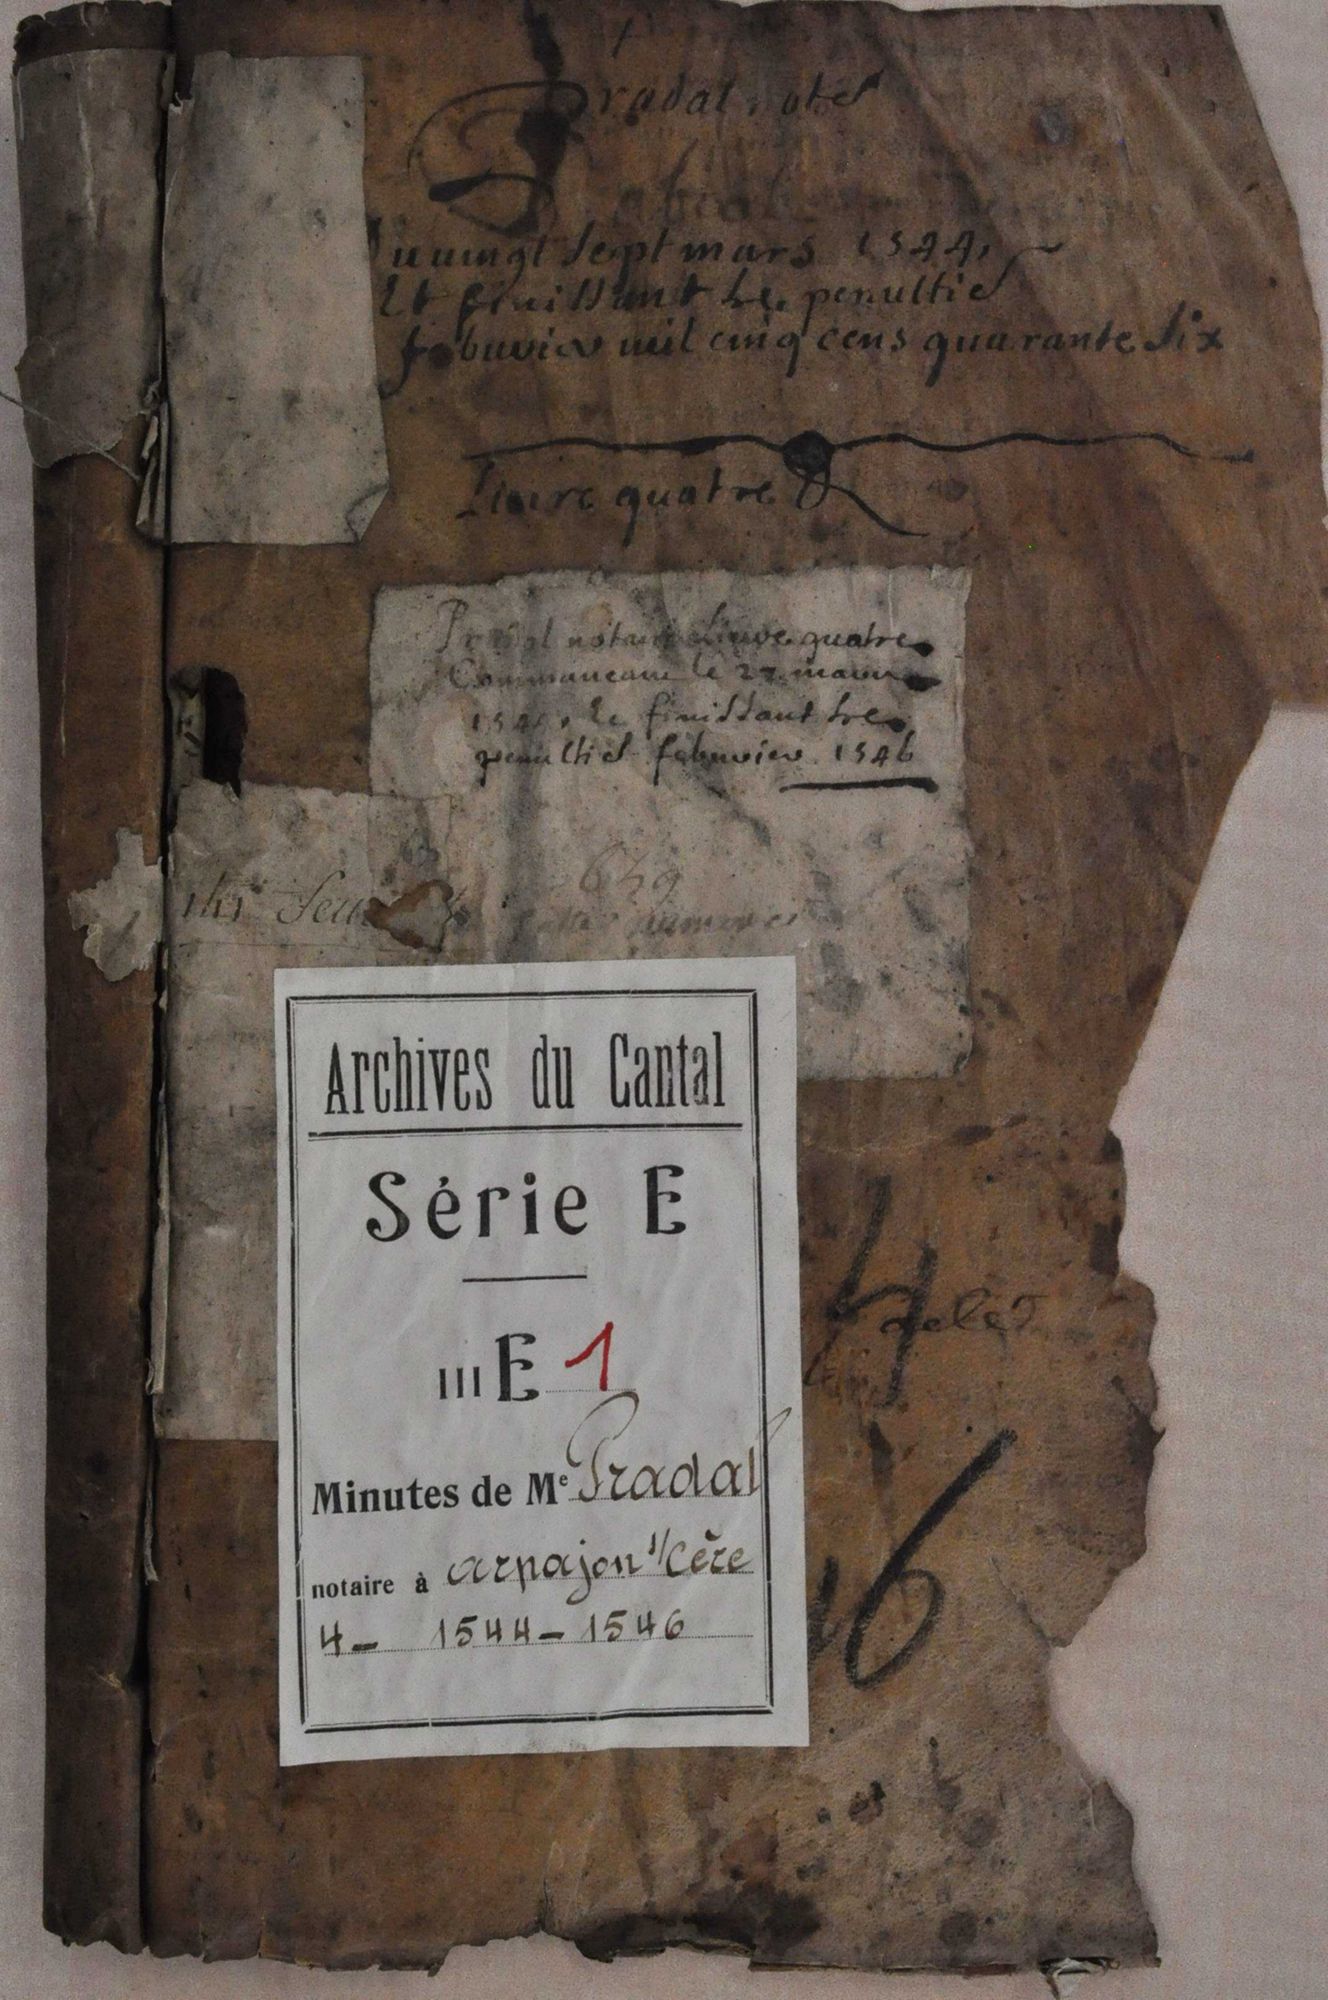 Pradal notes
Du vingt sept mars 1544,
Et finissant le penultie
febuvier mil cinq cens quarante six
Livre quatre
Pradal notaire Livre quatre
Commanceant le 27 mars
1544, et finissant le
penultie febuvier 1546
649
Archives du Cantal
Série E
III E 1
Minutes de Me Pradal
notaire à arpajon s/ Cère
4 - 1544 - 1546
4
46